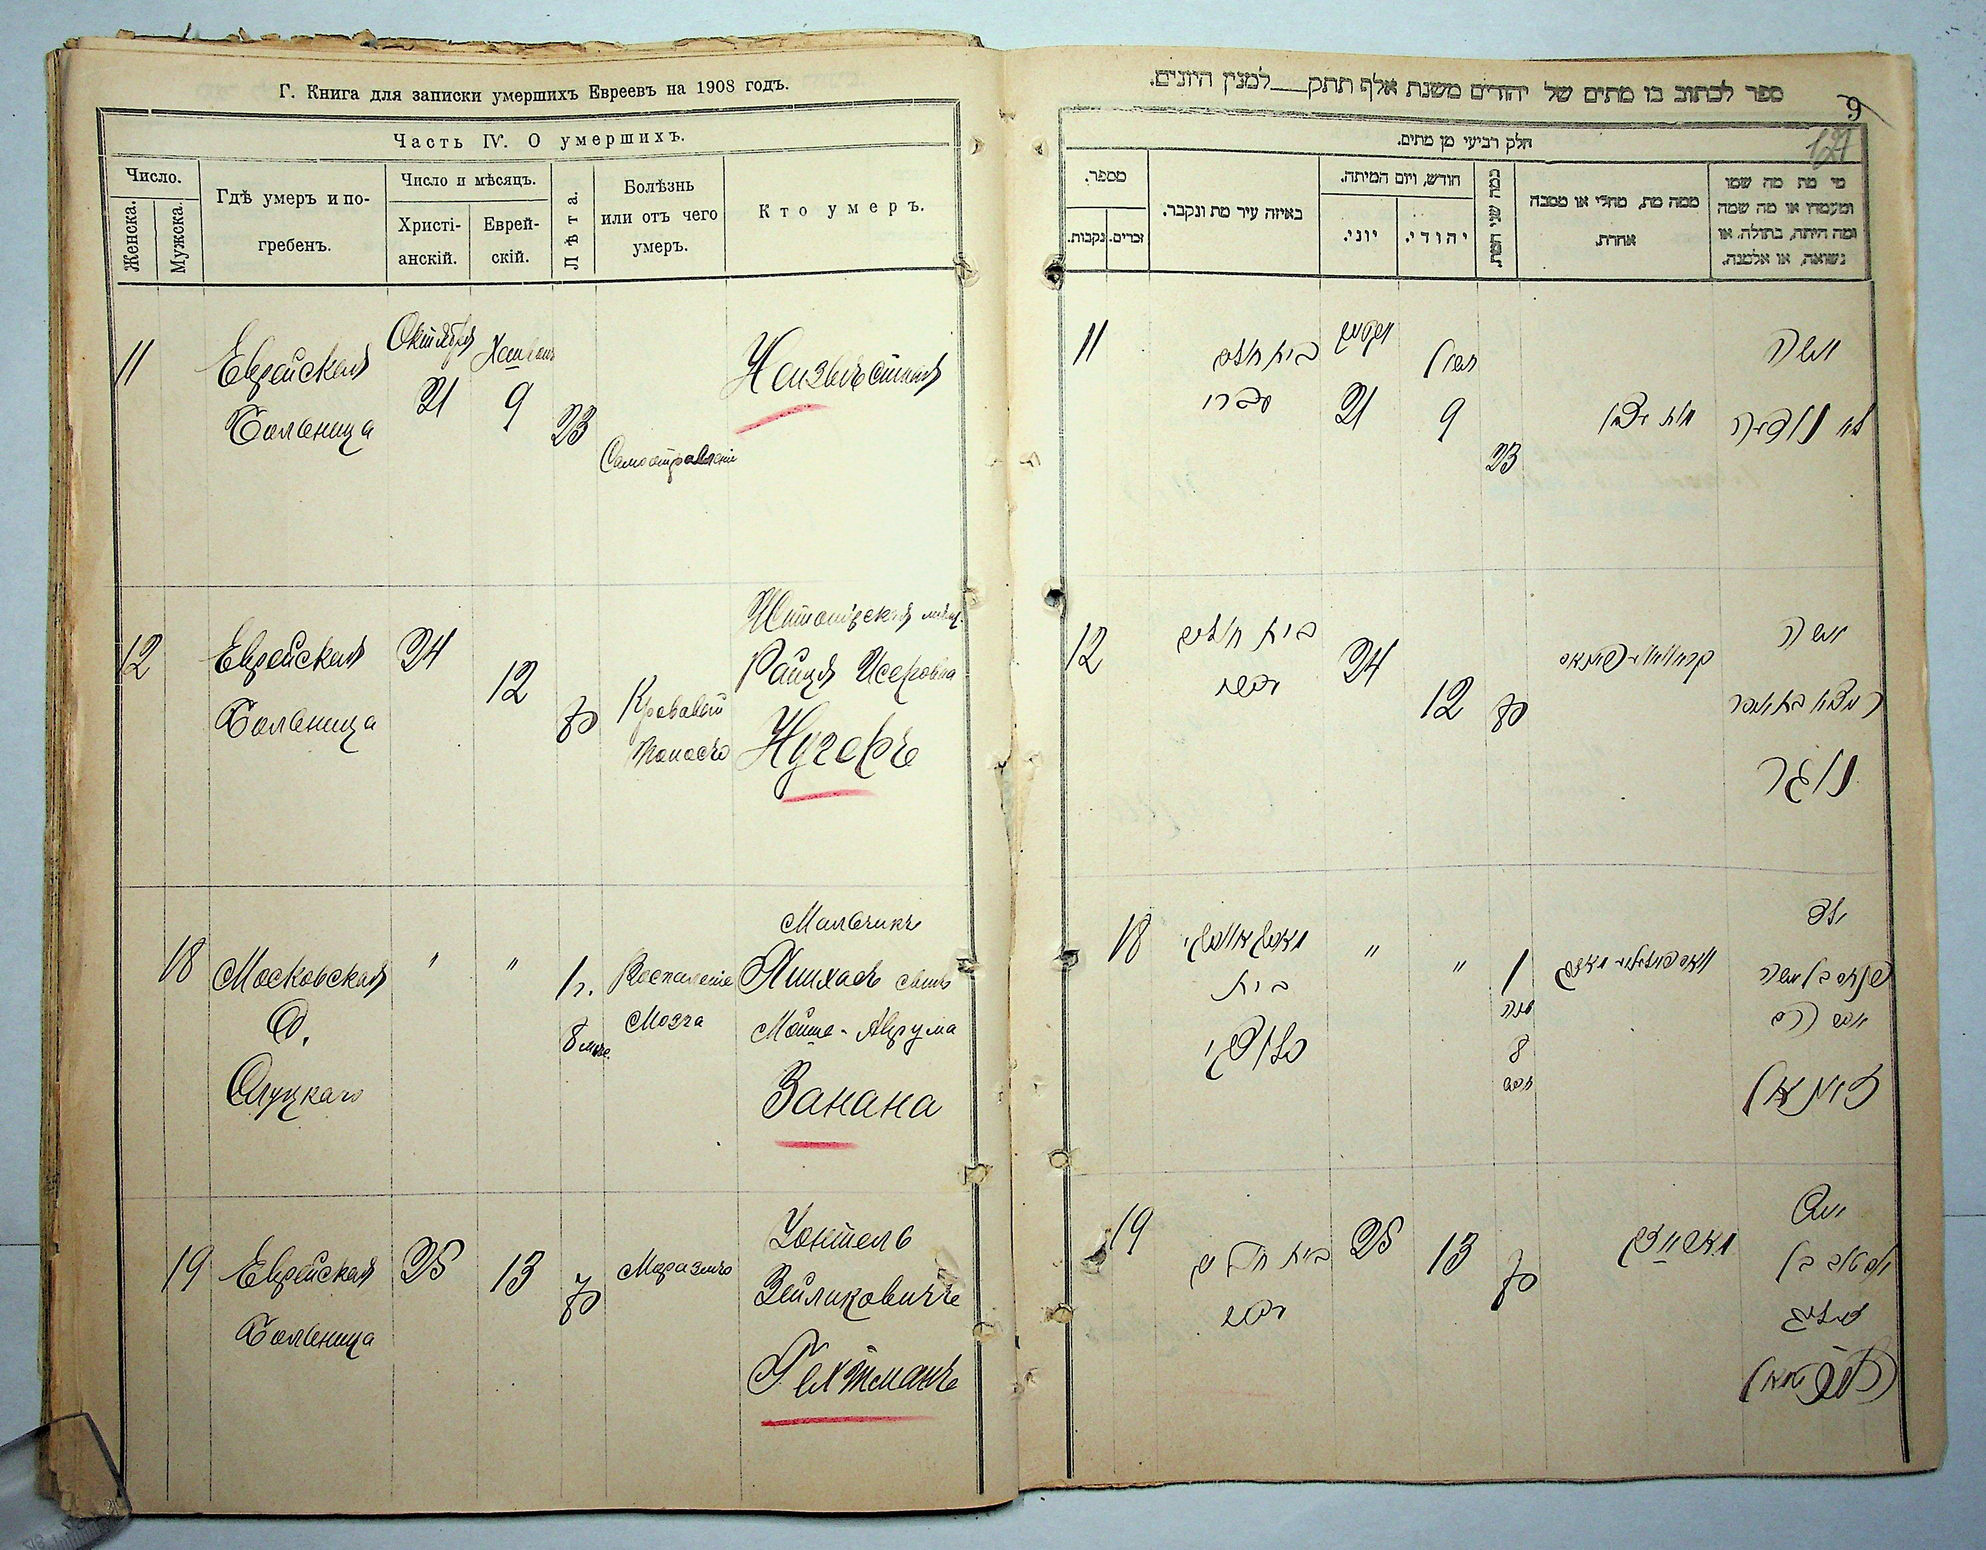 Г. Книга для записки умершихъ Евреевъ на 1903 годъ.
Часть IV. О умершихъ.
Число.
Женска.
Мужска.
Гдѣ умеръ и по-
гребенъ.
Число и мѣсяцъ.
Христі-
анскій.
Еврей-
скій.
Лѣта.
Болѣзнь
или отъ чего
умеръ.
Кто умеръ.
11
Еврейская
Больница
Октября
21
Хешванъ
9
23
Самоотравленіе
Неизвѣстная
12
Еврейская
Больница
24
12
70
Кровавый
Поносъ
Житомірская мѣщ.
Райця Исеровна
Нугеръ
18
Московская
д.
Слуцкаго
"
"
1 г.
8 мѣс.
Воспаленіе
Мозга
Мальчикъ
Пинхасъ сынъ
Мойше-Аврума
Занана
19
Еврейская
Больница
25
13
70
Маразмъ
Уоктель
Зейликовичъ
Гехтманъ
ספר לכתוב בו מתים של יהודים משנת אלף תתק___למנין היונים.
9
127
חלק רביעי מן מתים.
מספר.
נקבות.
זכרים.
באיזה עיר מת ונקבר.
חודש, ויום המיתה.
יוני.
יהודי.
כמה שני המת.
ממה מת, מחלי או מסבה
אחרת.
מי מת מה שמו
ומעמדו או מה שמה
ומה היתה, בתולה, או
נשואה, או אלמנה.
11
בית חולים
עברי
21
חשון
9
23
אשה
לא נודעה
12
בית חולים
24
12
70
אשה
נוגר
18
בית
סלוצקי
"
"
1
שנה
8
חדש
ילד
פנחס בן משה
אברהם
זאנאן
19
בית חולים
25
13
70
איש
זעליג
געכטמאן